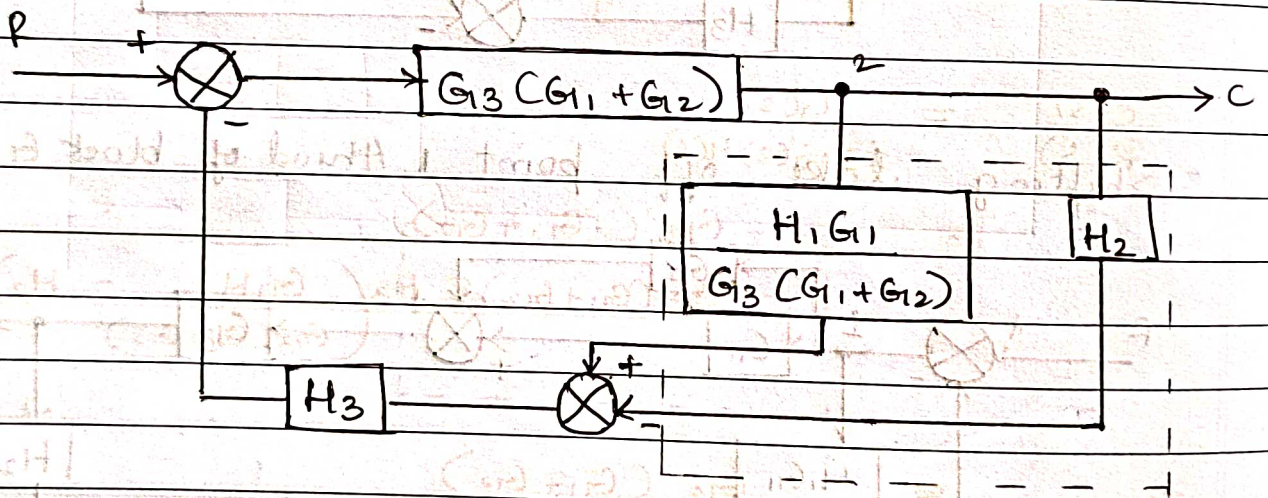 R + G3 (G1 + G2) 2 C
-
H1 G1
G3 (G1 + G2)
H2
+
H3 -